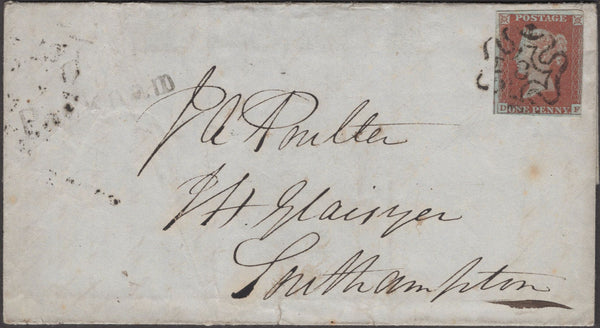 POSTAGE
D ONE PENNY F
J A Poulter
J H Glaisyer
Southampton